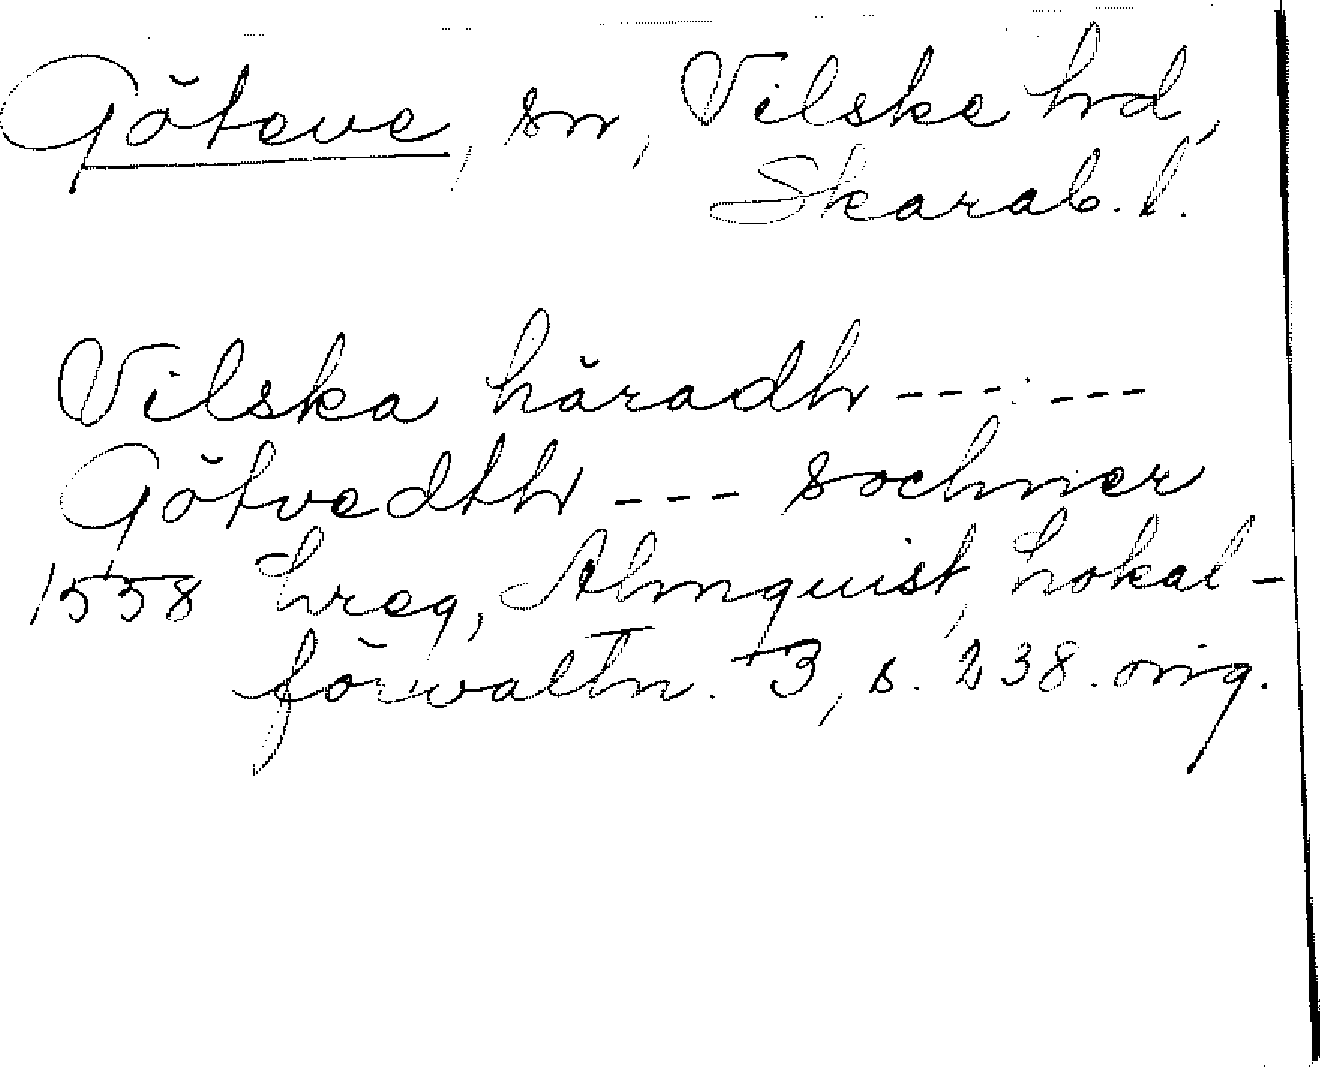 Göteve, sn, Vilske hd,
Skarab. l.
Vilska häradh --- ---
Götvedth --- sochner
1558 hreg, Almquist, Lokal-
förvaltn. 3, s. 238. orig.